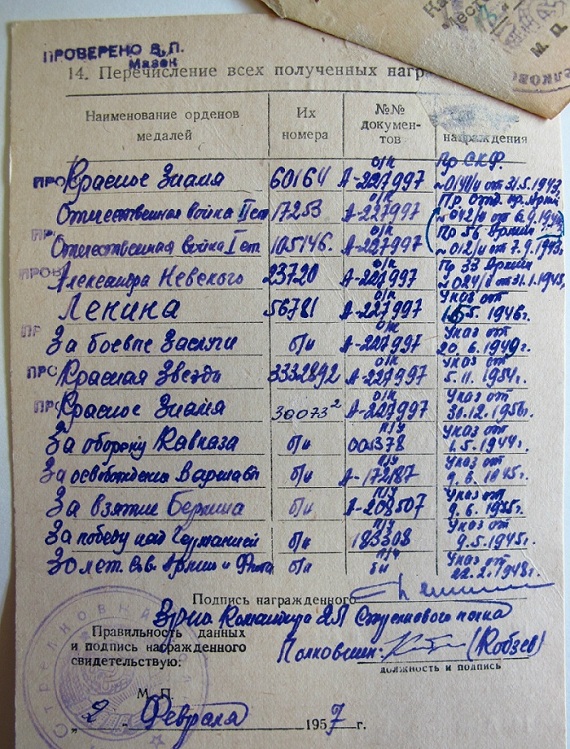 ПРОВЕРЕНО В.П.
14. Перечисление всех полученных нагр
Наименование орденов медалей | Их номера | №№ документов | награждения
Красное Знамя 60164 о/к А-227997 Пр. СКФ. №0141/н от 31.5.1943,
Отечественная война II ст 17253 о/к А-227997
Отечественная война I ст 105146. о/к А-227997 Пр 56 Армии №012/н от 7.9.1943г.
Александра Невского 23720 о/к А-227997 Пр 33 Армии
Ленина 56781 о/к А-227997 Указ от 5.1946г.
За боевые Заслуги б/н о/к А-227997 Указ от 20.6.1949г.
Красная Звезда 3332892 о/к А-227997 Указ от 5.11.1954г.
Красное Знамя о/к А-227997 Указ от 30.12.1956г.
За оборону Кавказа б/н п/у 001378 Указ от 1.5.1944г.
За освобождение Варшавы б/н п/у А-172187 Указ от 9.6.1945г.
За взятие Берлина б/н п/у А-208507 Указ от 9.6.1945г.
За победу над Германией б/н п/у 183308 Указ от 9.5.1945г.
30 лет Сов. Армии и Флота б/н п/у б/н Указ от 22.2.1948г.
Подпись награжденного
Правильность данных
и подпись награжденного
свидетельствую:
Полковник: (Кобзев)
должность и подпись
М. П.
„2 - Февраля 1957 г.